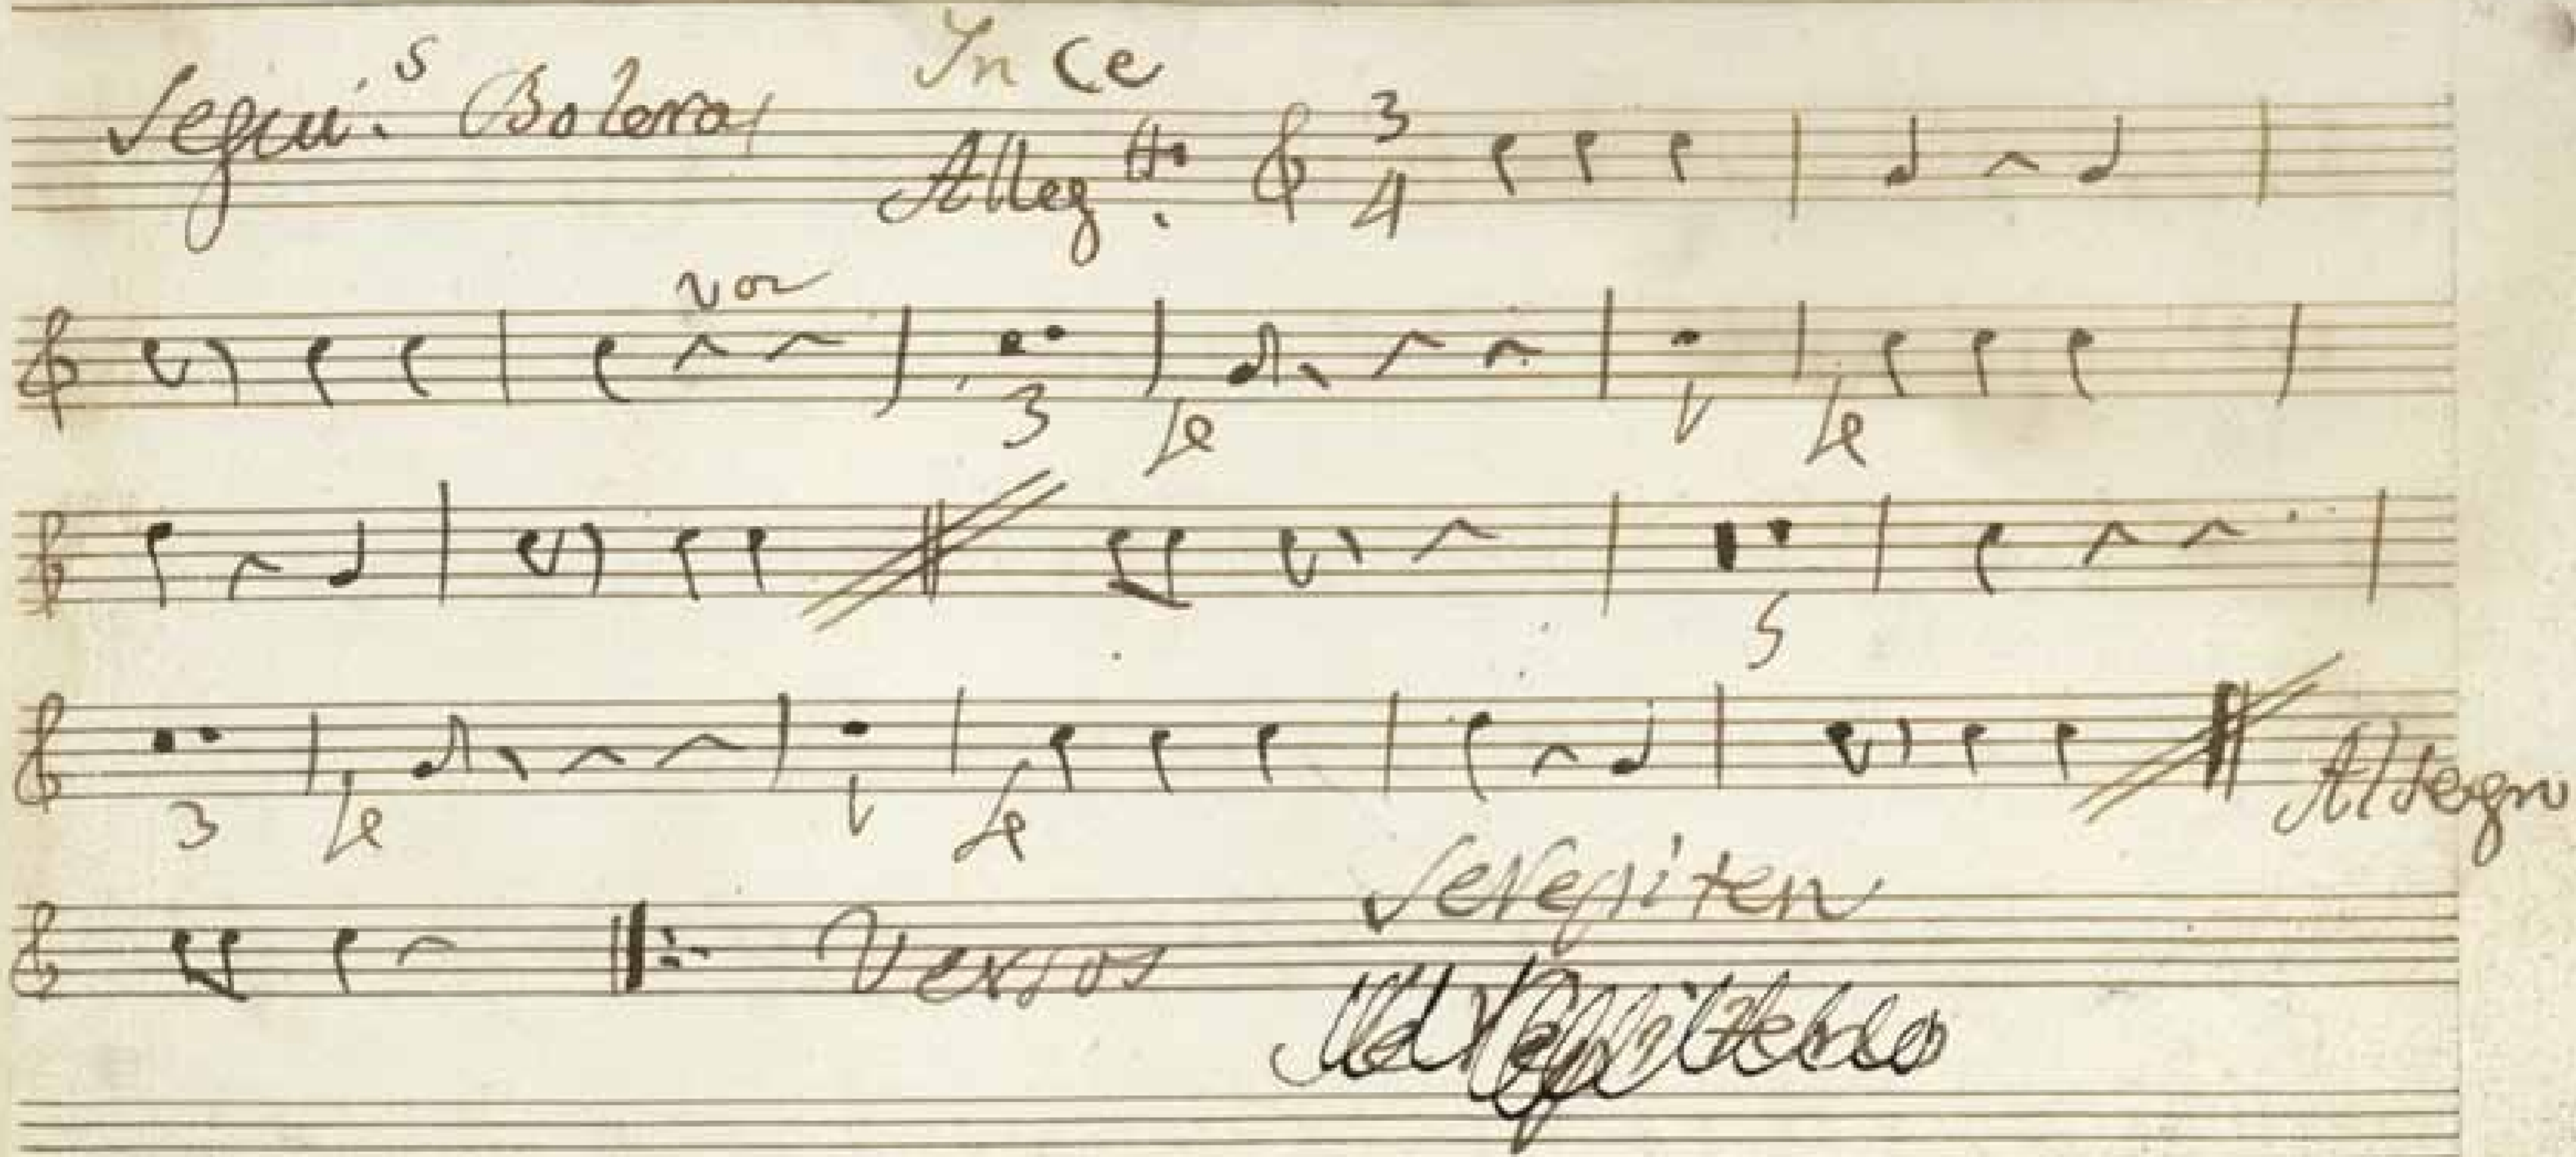 Segui.s Boleras In Ce
Alleg.tto 3 4
voz
3 le 1 le
5
3 le 1 le Al segn
Versos se repiten